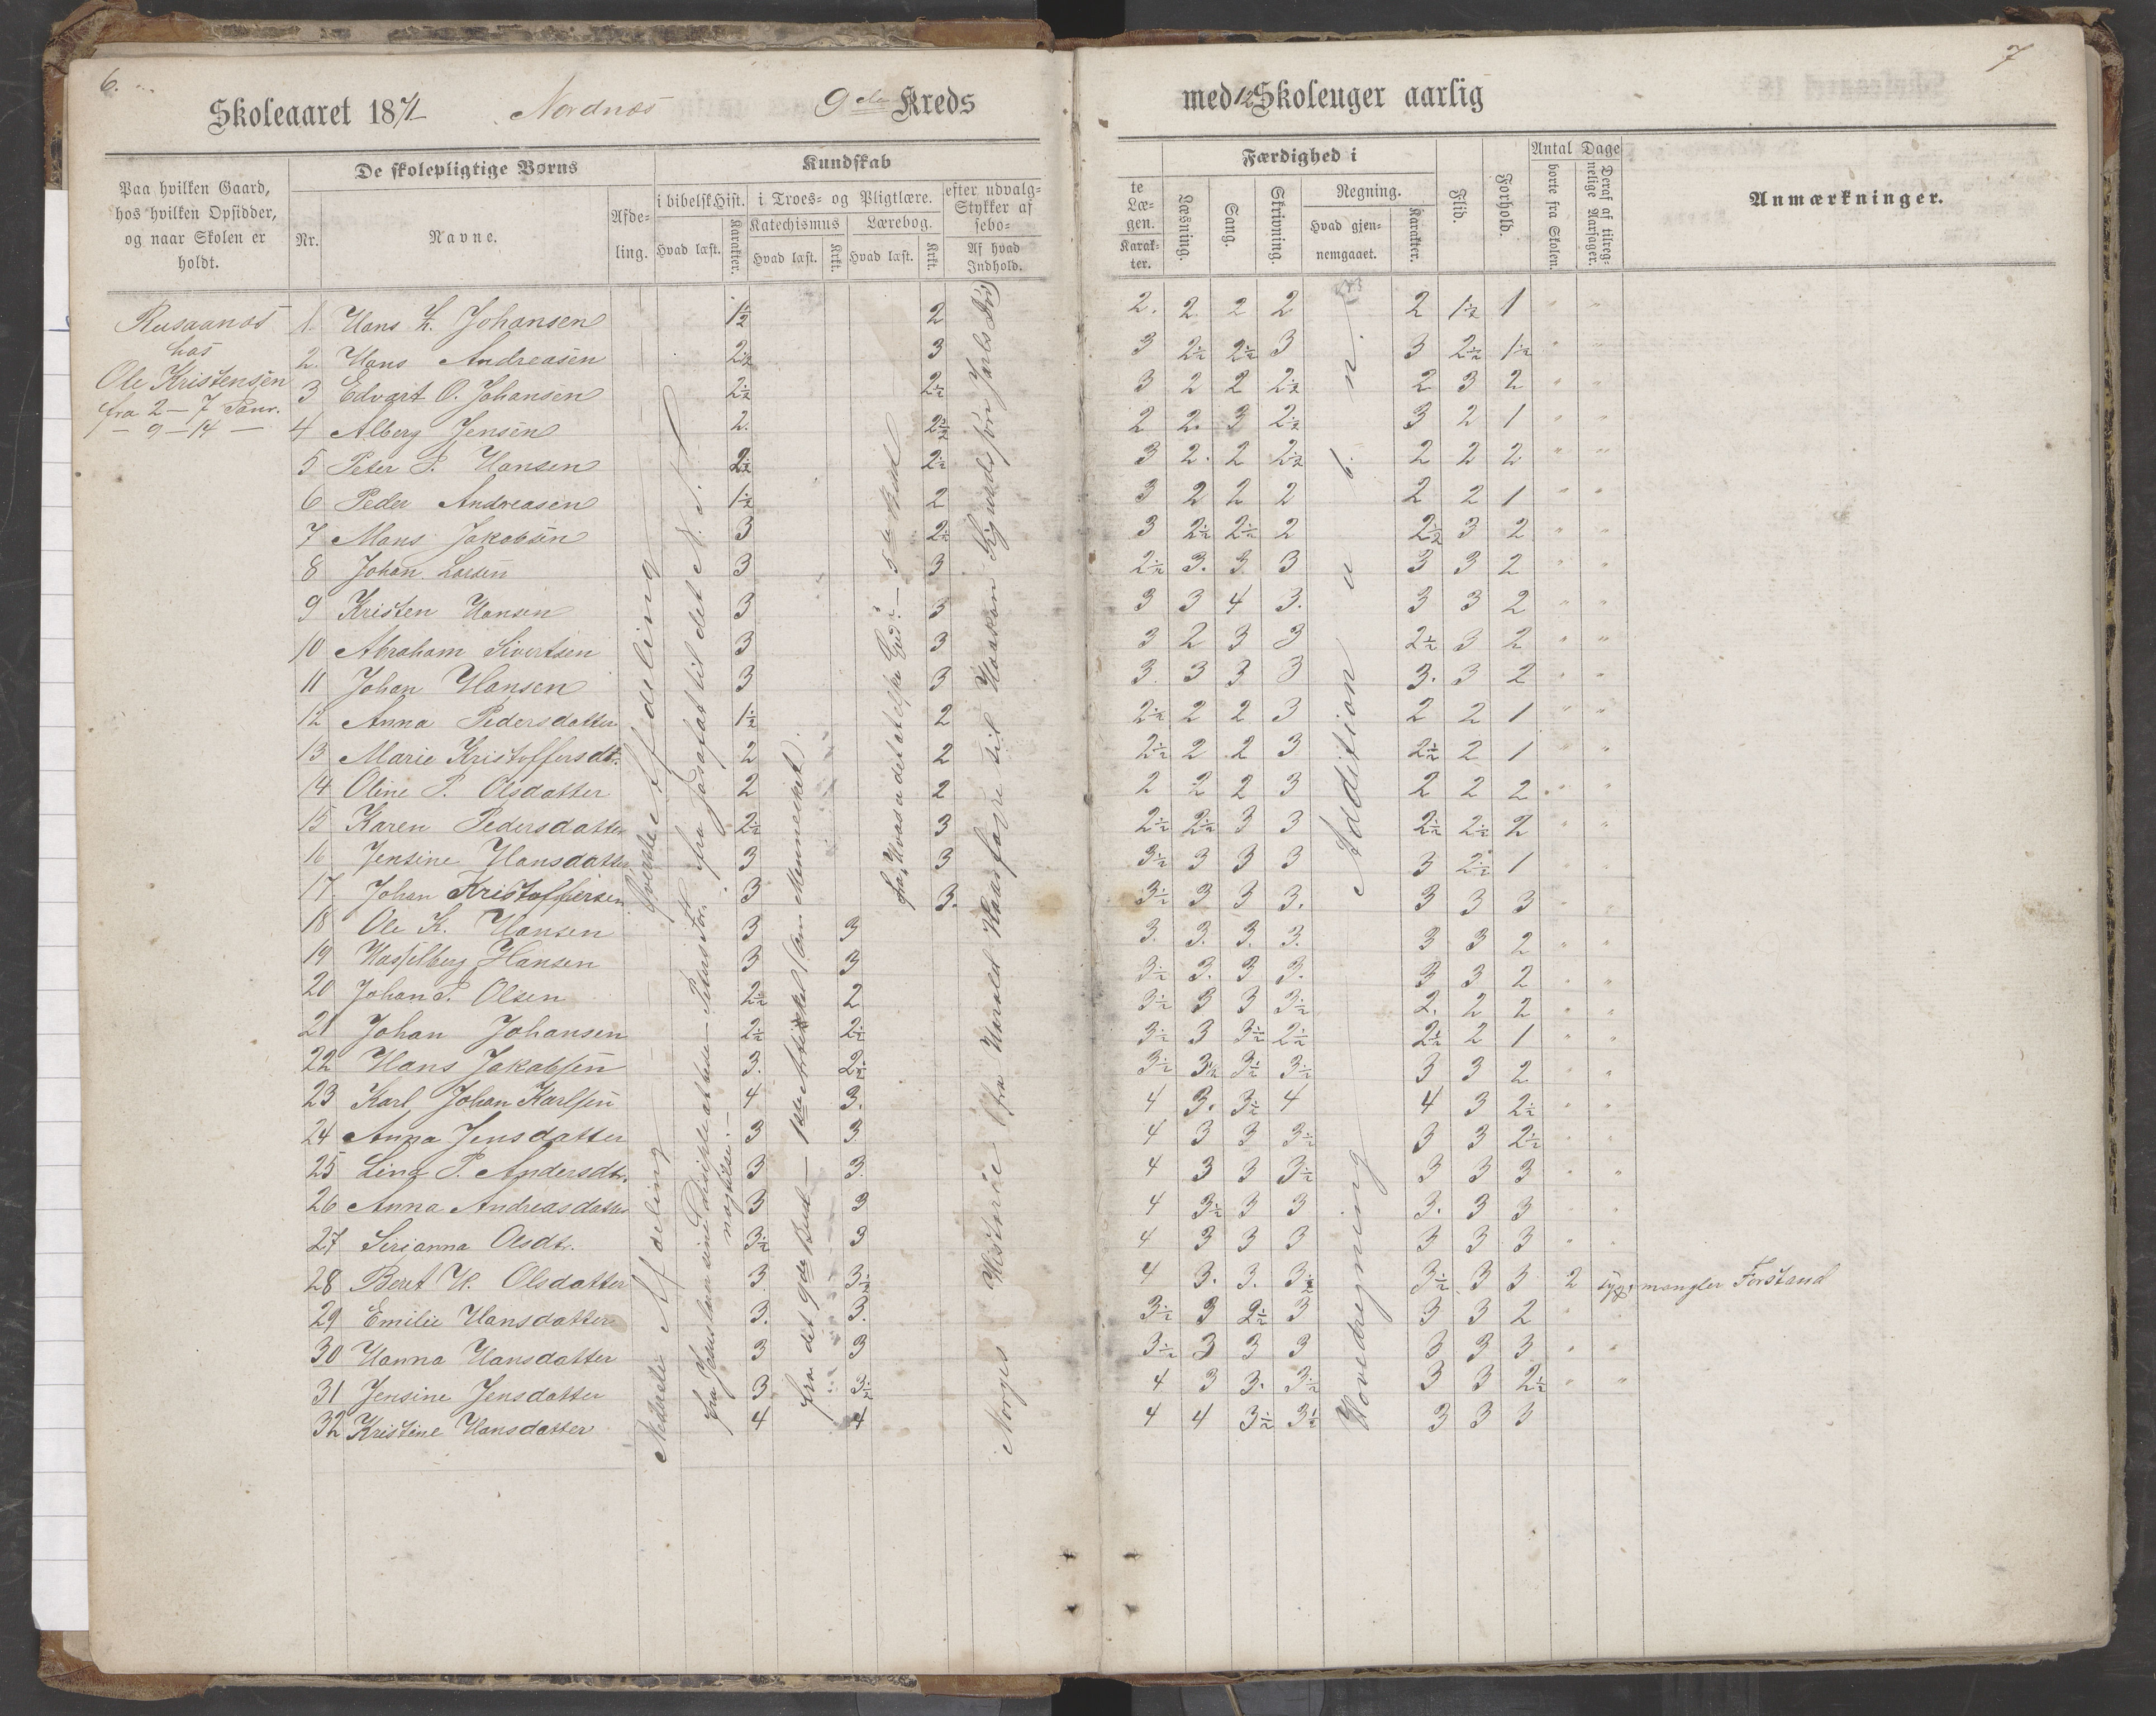 6.
Skoleaaret 1871 Nordnæs 9de Kreds
Paa hvilken Gaard, hos hvilken Opsidder, og naar Skolen er holdt.
De skolepligtige Børns
Nr. Navne. Afdeling.
Kundskab
i bibelsk Hist. i Troes- og Pligtlære. efter udvalg=
Katechismus Lærebog. Stykker af
Hvad læst. Karakter. Hvad læst. Krkt. Hvad læst. Krkt. sebo=
Af hvad Indhold.
Rusaanæs
hos
Ole Kristensen
fra 2 - 7 Janr.
- 9 - 14 -
1. Hans L. Johansen 1½ 2
2. Hans Andreasen 2½ 3
3 Edvart O. Johansen 2½ 2½
4 Alberg Jensen 2. 2½
5 Peter P. Hansen 2½ 2½
6 Peder Andreasen 1½ 2
7 Mons Jakobsen 3 2½
8 Johan Larsen 3 3
9 Kristen Hansen 3 3
10 Abraham Sivertsen 3 3
11 Johan Hansen 3 3
12 Anna Pedersdatter 1½ 2
13 Marie Kristoffersdt. 2 2
14 Oline P. Olsdatter 2 2
15 Karen Pedersdatter 2½ 3
16 Jensine Hansdatter 3 3
17 Johan Kristoffersen 3 3.
18 Ole K. Hansen 3 3
19 Hasselberg Hansen 3 3
20 Johan P. Olsen 2½ 2
21 Johan Johansen 2½ 2½
22 Hans Jakobsen 3. 2½
23 Karl Johan Karlsen 4 3.
24 Anna Jensdatter 3 3
25 Lina P. Andersdtr. 3 3.
26 Anna Andreasdatter 3 3
27 Sirianna Olsdt. 3½ 3
28 Beret H. Olsdatter 3 3½
29 Emilie Hansdatter 3. 3.
30 Hanna Hansdatter 3 3
31 Jensine Jensdatter 3 3½
32 Kristine Hansdatter 4 4
Øverste Afdeling
Nederste Afdeling
fra Josafat til det N. T.
fra Jesus lærer sine Disciple at bede - Peters For-
nægtelse. -
fra det 9de Bud - 1ste Artikkel (om Mennesket).
fra, Hvad er det at elske Gud? - 5te Bud
Norges Historie fra Harald Haarfagre til Haakon Sigurdssøn Jarls Død
7
med 12 Skoleuger aarlig
te Læ- gen. Karak- ter.
Færdighed i
Læsning. Sang. Skrivning. Regning.
Hvad gjen- nemgaaet. Karakter.
Flid. Forhold.
Antal Dage
borte fra Skolen. Deraf af tilreg- nelige Aarsager.
Anmærkninger.
2. 2 2 2 2 1½ 1 " "
3 2½ 2½ 3 3 2½ 1½ " "
3 2 2 2½ 2 3 2 " "
2 2. 3 2½ 3 2 1 " "
3 2. 2 2½ 2 2 2 " "
3 2 2 2 2 2 1 " "
3 2½ 2½ 2 2½ 3 2 " "
2½ 3. 3. 3 3 3 2 " "
3 3 4 3. 3 3 2 " "
3 2 3 3 2½ 3 2 " "
3. 3 3 3 3. 3 2 " "
2½ 2 2 3 2 2 1 " "
2½ 2 2 3 2½ 2 1 " "
2 2 2 3 2 2 2 " "
2½ 2½ 3 3 2½ 2½ 2 " "
3½ 3 3 3 3 2½ 1 " "
3½ 3 3 3. 3 3 3 " "
3. 3. 3. 3. 3 3 2 " "
3½ 3. 3 3. 3 3 2 " "
3½ 3 3 3½ 2. 2 2 " "
3½ 3 3½ 2½ 2½ 2 1 " "
3½ 3½ 3½ 3½ 3 3 2 " "
4 3. 3½ 4 4 3 2½ " "
4 3 3 3½ 3 3 2½ " "
4 3 3 3½ 3 3 3 " "
4 3½ 3 3 3. 3 3 " "
4 3 3 3 3 3 3 " "
4 3. 3. 3½ 3½ 3 3 2 syg. mangler Forstand
3½ 3 2½ 3 3 3 2 "
3½ 3 3 3 3 3 3 " "
4 3 3. 3½ 3 3 2½ " "
4 4 3½ 3½ 3 3 3
Addition
Hovedregning